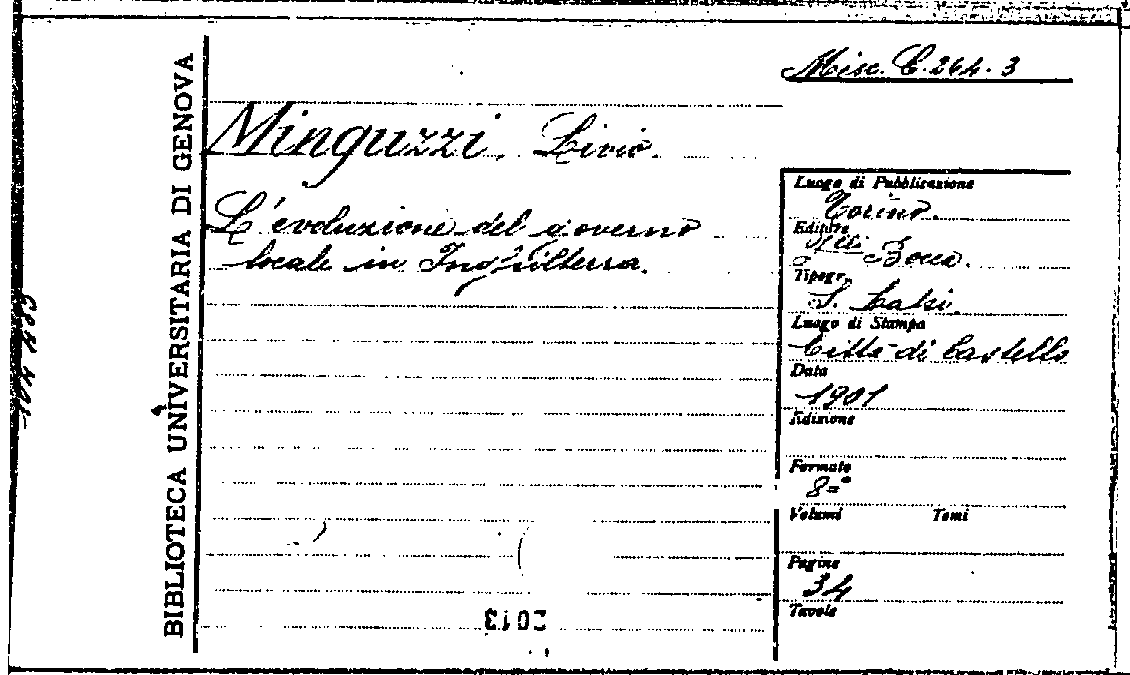 Misc. C. 264. 3
BIBLIOTECA UNIVERSITARIA DI GENOVA
Minguzzi, Livio.
L'evoluzione del governo
locale in Inghilterra.
Luogo di Pubblicazione
Torino.
Editore
F.lli Bocca.
Tipogr.
S. Lapi.
Luogo di Stampa
Città di Castello
Data
1901
Edizione
Formato
8=°
Volumi Tomi
Pagine
34
Tavole
2013